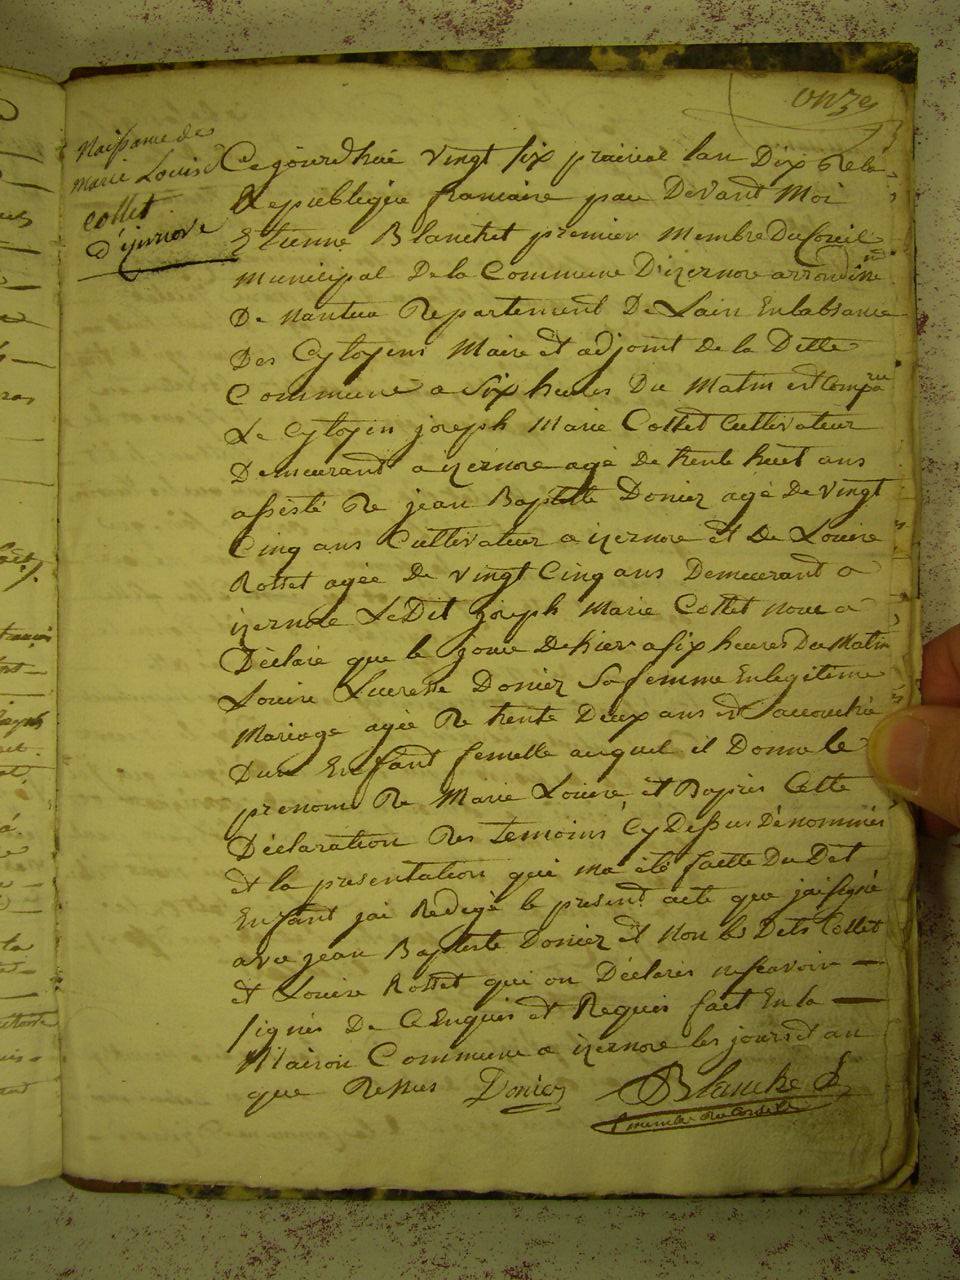 onze
Naissance de
Marie Louise
Collet
d'izernore
Cejourdhui vingt six prairial lan Dix De la
Republique francaise par Devant Moi
Etienne Blanchet premier Membre Du Conseil
Municipal De la Commune D'izernore arrondisse
De Nantua Departement De Lain En labsance
Des Cytoyens Maire et adjoint de la Ditte
Commune a Six heures Du Matin est Comparu
Le Cytoyen joseph Marie Collet Cultivateur
Demeurant a izernore agé De trente huit ans
assisté De jean Baptiste Doniez agé De vingt
Cinq ans Cultivateur a izernore et De Louise
Rosset agée De vingt Cinq ans Demeurant a
izernore Le Dit joseph Marie Collet nous a
Déclaré que le jour Dehier a six heures Du Matin
Louise Lucresse Doniez Sa femme En legitime
Mariage agée De trente Deux ans est accouchée
Dun Enfant femelle auquel il Donne le
prenome De Marie Louise et Dapres Cette
Déclaration Des temoins Cy Dessus Dénommés
et la presentation qui ma été faitte Du Dit
Enfant jai Redigé le present acte que jai signé
avec jean Baptiste Doniez et Non les Dits Collet
et Louise Rosset qui on Déclarés ne scavoir
signés De Ce Enquis et Requis fait En la
Maison Commune a izernore les jours et an
que Dessus Doniez Blanchet
membre Du Conseil